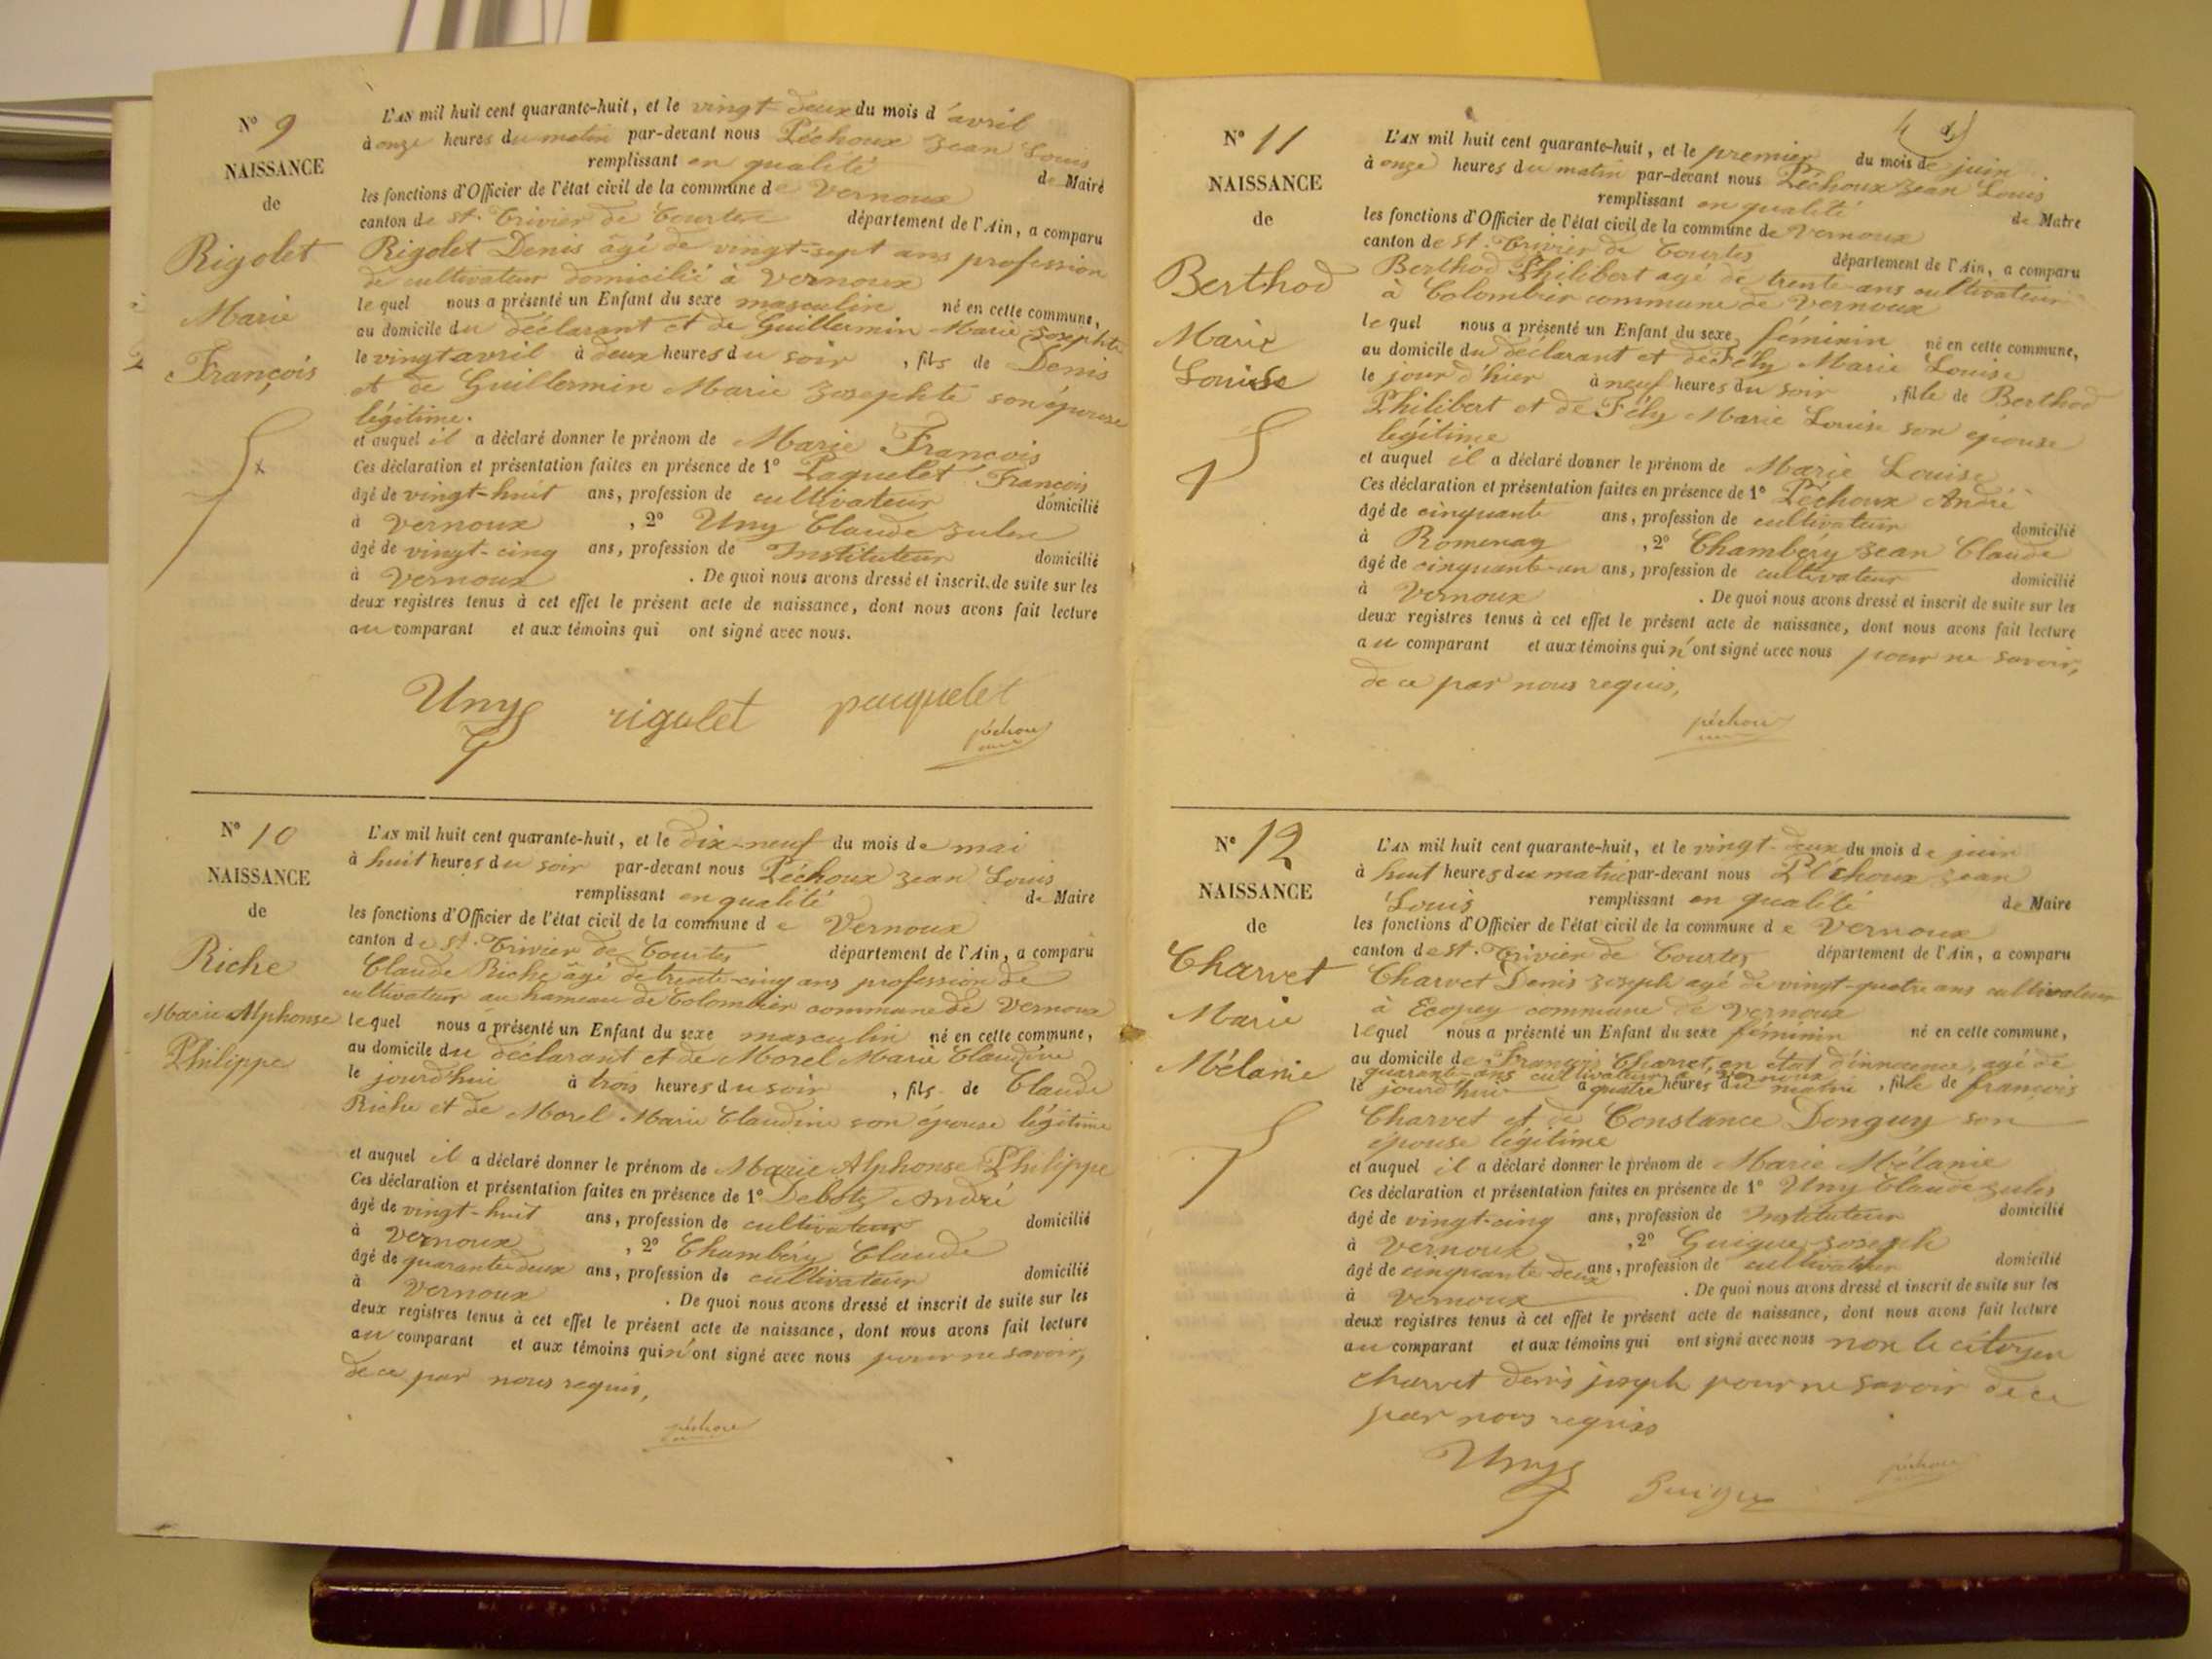 N° 9
NAISSANCE
de
Rigolet
Marie
François
L'AN mil huit cent quarante-huit, et le vingt-deux du mois d'avril
à onze heures du matin par-devant nous Péchoux Jean Louis
remplissant en qualité de Maire
les fonctions d'Officier de l'état civil de la commune de Vernoux
canton de St. Trivier de Courtes département de l'Ain, a comparu
Rigolet Denis âgé de vingt-sept ans profession
de cultivateur domicilié à Vernoux
lequel nous a présenté un Enfant du sexe masculin né en cette commune,
au domicile du déclarant et de Guillermin Marie Josephte
le vingt avril à deux heures du soir, fils de Denis
et de Guillermin Marie Josephte son épouse
légitime.
et auquel il a déclaré donner le prénom de Marie François
Ces déclaration et présentation faites en présence de 1° Paquelet François
âgé de vingt-huit ans, profession de cultivateur domicilié
à Vernoux, 2° Uny Claude Jules
âgé de vingt-cinq ans, profession de Instituteur domicilié
à Vernoux. De quoi nous avons dressé et inscrit de suite sur les
deux registres tenus à cet effet le présent acte de naissance, dont nous avons fait lecture
au comparant et aux témoins qui ont signé avec nous.
Uny rigolet pauquelet
péchoux
N° 10
NAISSANCE
de
Riche
Marie Alphonse
Philippe
L'AN mil huit cent quarante-huit, et le dix-neuf du mois de mai
à huit heures du soir par-devant nous Péchoux Jean Louis
remplissant en qualité de Maire
les fonctions d'Officier de l'état civil de la commune de Vernoux
canton de St. Trivier de Courtes département de l'Ain, a comparu
Claude Riche âgé de trente-cinq ans profession de
cultivateur au hameau de Colombier commune de Vernoux
lequel nous a présenté un Enfant du sexe masculin né en cette commune,
au domicile du déclarant et de Morel Marie Claudine
le jourd'hui à trois heures du soir, fils de Claude
Riche et de Morel Marie Claudine son épouse légitime
et auquel il a déclaré donner le prénom de Marie Alphonse Philippe
Ces déclaration et présentation faites en présence de 1° Debost André
âgé de vingt-huit ans, profession de cultivateur domicilié
à Vernoux, 2° Chambéry Claude
âgé de quarante-deux ans, profession de cultivateur domicilié
à Vernoux. De quoi nous avons dressé et inscrit de suite sur les
deux registres tenus à cet effet le présent acte de naissance, dont nous avons fait lecture
au comparant et aux témoins qui n'ont signé avec nous pour ne savoir,
de ce par nous requis,
péchoux
N° 11
NAISSANCE
de
Berthod
Marie
Louise
L'AN mil huit cent quarante-huit, et le premier du mois de juin
à onze heures du matin par-devant nous Péchoux Jean Louis
remplissant en qualité de Maire
les fonctions d'Officier de l'état civil de la commune de Vernoux
canton de St. Trivier de Courtes département de l'Ain, a comparu
Berthod Philibert agé de trente ans cultivateur
à Colombier commune de Vernoux
lequel nous a présenté un Enfant du sexe féminin né en cette commune,
au domicile du déclarant et de Fély Marie Louise
le jour d'hier à neuf heures du soir, fille de Berthod
Philibert et de Fély Marie Louise son épouse
légitime
et auquel il a déclaré donner le prénom de Marie Louise
Ces déclaration et présentation faites en présence de 1° Péchoux André
âgé de cinquante ans, profession de cultivateur domicilié
à Romenay, 2° Chambéry Jean Claude
âgé de cinquante-un ans, profession de cultivateur domicilié
à Vernoux. De quoi nous avons dressé et inscrit de suite sur les
deux registres tenus à cet effet le présent acte de naissance, dont nous avons fait lecture
au comparant et aux témoins qui n'ont signé avec nous pour ne savoir,
de ce par nous requis,
péchoux
N° 12
NAISSANCE
de
Charvet
Marie
Mélanie
L'AN mil huit cent quarante-huit, et le vingt-deux du mois de juin
à huit heures du matin par-devant nous Péchoux Jean
Louis remplissant en qualité de Maire
les fonctions d'Officier de l'état civil de la commune de Vernoux
canton de St. Trivier de Courtes département de l'Ain, a comparu
Charvet Denis Joseph agé de vingt-quatre ans cultivateur
à Ecopey commune de Vernoux
lequel nous a présenté un Enfant du sexe féminin né en cette commune,
au domicile de François Charvet, en état d'innocence, agé de
quarante-ans cultivateur à Vernoux
le jourd'hui à quatre heures du matin, fille de françois
Charvet et de Constance Donguy son
épouse légitime
et auquel il a déclaré donner le prénom de Marie Mélanie
Ces déclaration et présentation faites en présence de 1° Uny Claude Jules
âgé de vingt-cinq ans, profession de Instituteur domicilié
à Vernoux, 2° Guigue Joseph
âgé de cinquante deux ans, profession de cultivateur domicilié
à Vernoux. De quoi nous avons dressé et inscrit de suite sur les
deux registres tenus à cet effet le présent acte de naissance, dont nous avons fait lecture
au comparant et aux témoins qui ont signé avec nous non le citoyen
charvet denis joseph pour ne savoir de ce
par nous requis
Uny Guigue péchoux